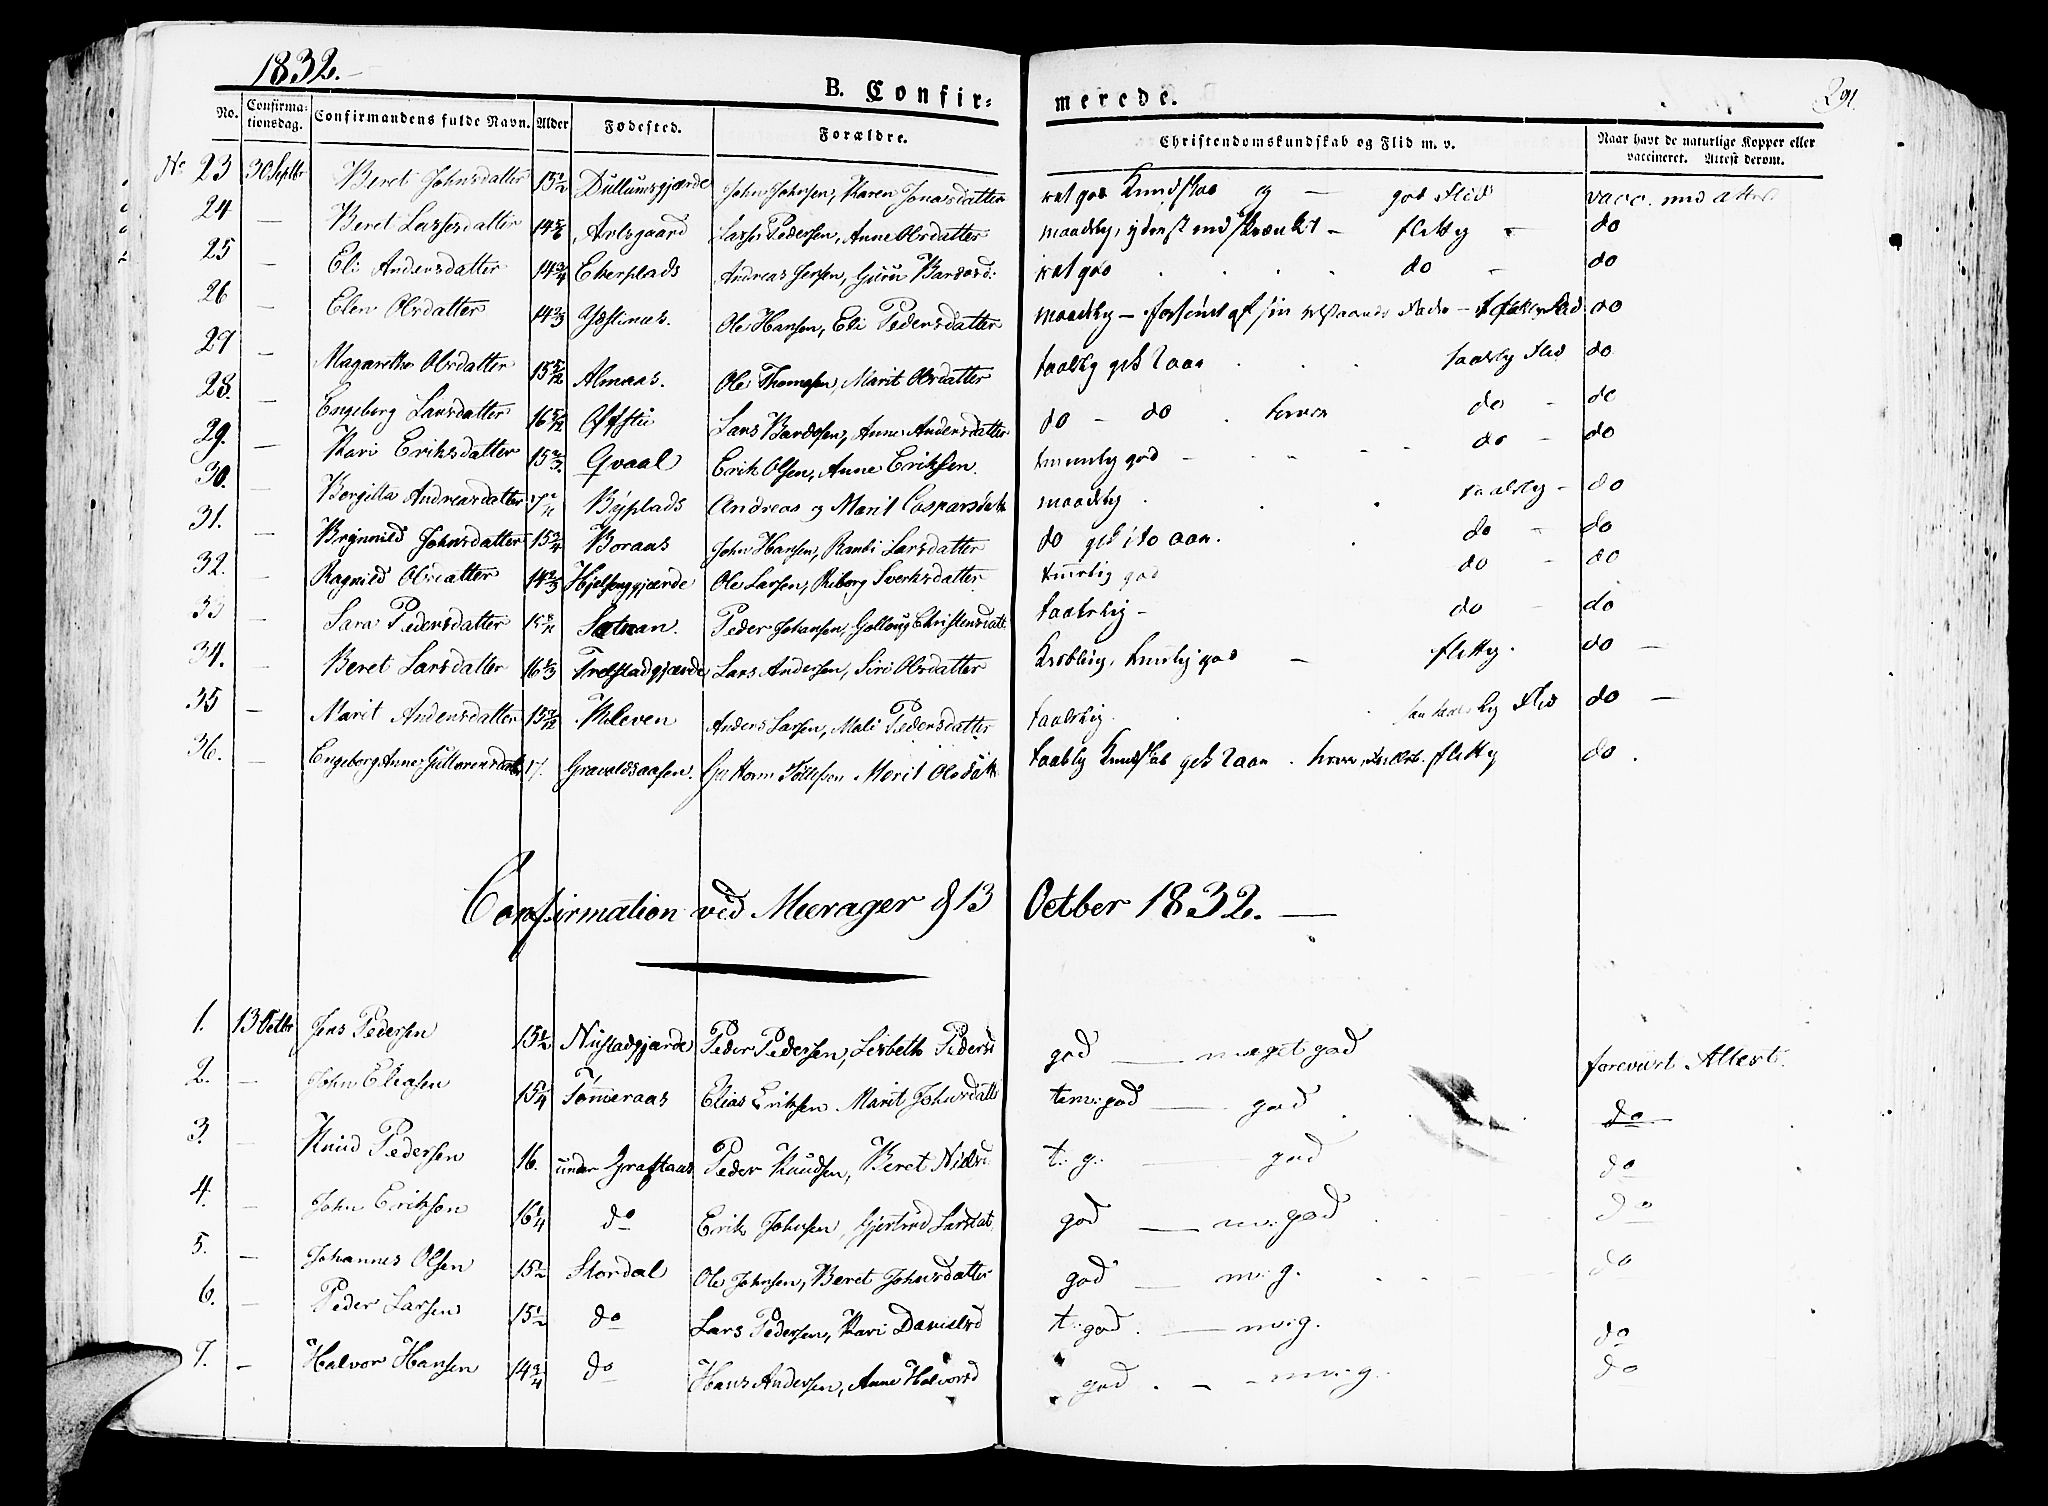 1832.
B. Confirmerede.
291
No. Confirmationsdag. Confirmandens fulde Navn. Alder Fødested. Forældre. Christendomskundskab og Flid m. v. Naar havt de naturlige Kopper eller vaccineret. Attest derom.
No 23 30 Septbr Beret Johnsdatter 15 1/2 Dullumsgjærde John Johnsen, Karen Jonasdatter god Kundskab og — god Flid vacc. med attest
24 — Beret Larsdatter 14 5/6 Arlsgaard Lars Pedersen, Anne Olsdatter maadelig, — flittig do
25 — Eli Andersdatter 14 3/4 Eberplads Andreas Jensen, Guru Bardosd: do do
26 — Elen Olsdatter 14 2/3 Ystines. Ole Hansen, Eli Pedersdatter maadelig — do
27 — Magarethe Olsdatter 15 5/12 Almaas. Ole Thomesen, Marit Olsdatter taalelig gik 2 aar taalelig Flid do
28. — Engeborg Larsdatter 16 5/12 Øfsti Lars Bardosen, Anne Andersdatter do — do do — do
29. — Kari Eriksdatter 15 2/3. Qvaal Erik Olsen, Anne Eriksen. temmelig god — do — do
30. — Bergitta Andreasdatter 17 Byplads Andreas og Marit Casparsdatt maadelig taalelig — do
31. — Brynnild Johnsdatter 15 3/4 Boraas John Hansen, Randi Larsdatter do gik i 10 aar. do — do
32. — Ragnild Olsdatter 14 2/3 Hjelsenggjærde Ole Larsen, Riborg Sverksdatter temelig god do — do
33 — Sara Pedersdatter Satnan. Peder Johansen, Gollaug Christensdatt taalelig — do — do
34. — Beret Larsdatter 16 1/3 Trelstadgjærde Lars Andersen, Siri Olsdatter temelig god — flittig. do —
35 — Marit Andersdatter 15 7/12 Kleven Anders Larsen, Mali Pedersdatter taalelig. Flid do —
36. — Engeborg Anne Guttormsdatter 17. Gravaldsaasen. Guttorm Tollefsen Marit Olsdatt taalelig Kundskab gik 2 aar. flittig do.
Confirmation ved Meerager d 13 Octber 1832. —
1. 13 Octbr Jens Pedersen 15 1/2 Nustadgjærde Peder Pedersen, Lisbeth Pedersd god — meget god forevist Attest.
2. — John Eliasen 15 1/4 Tømeraas Elias Eriksen Marit Johnsdatt tem: god — god do
3. — Knud Pedersen 16. under Graftaas Peder Knudsen, Beret Nielsd t: g: — god do
4. — John Eriksen 16 1/4 do Erik Johnsen, Gjertrud Larsdat god — m: god do
5. — Johannes Olsen 15 1/2 Stordal Ole Johnsen, Beret Johnsdatter god — m: g. do
6. — Peder Larsen 15 1/2 do Lars Pedersen, Kari Danielsd t: god. — m: g. do
7. — Halvor Hansen 14 3/4 do Hans Andersen, Anne Halvorsd god. — m: g. do